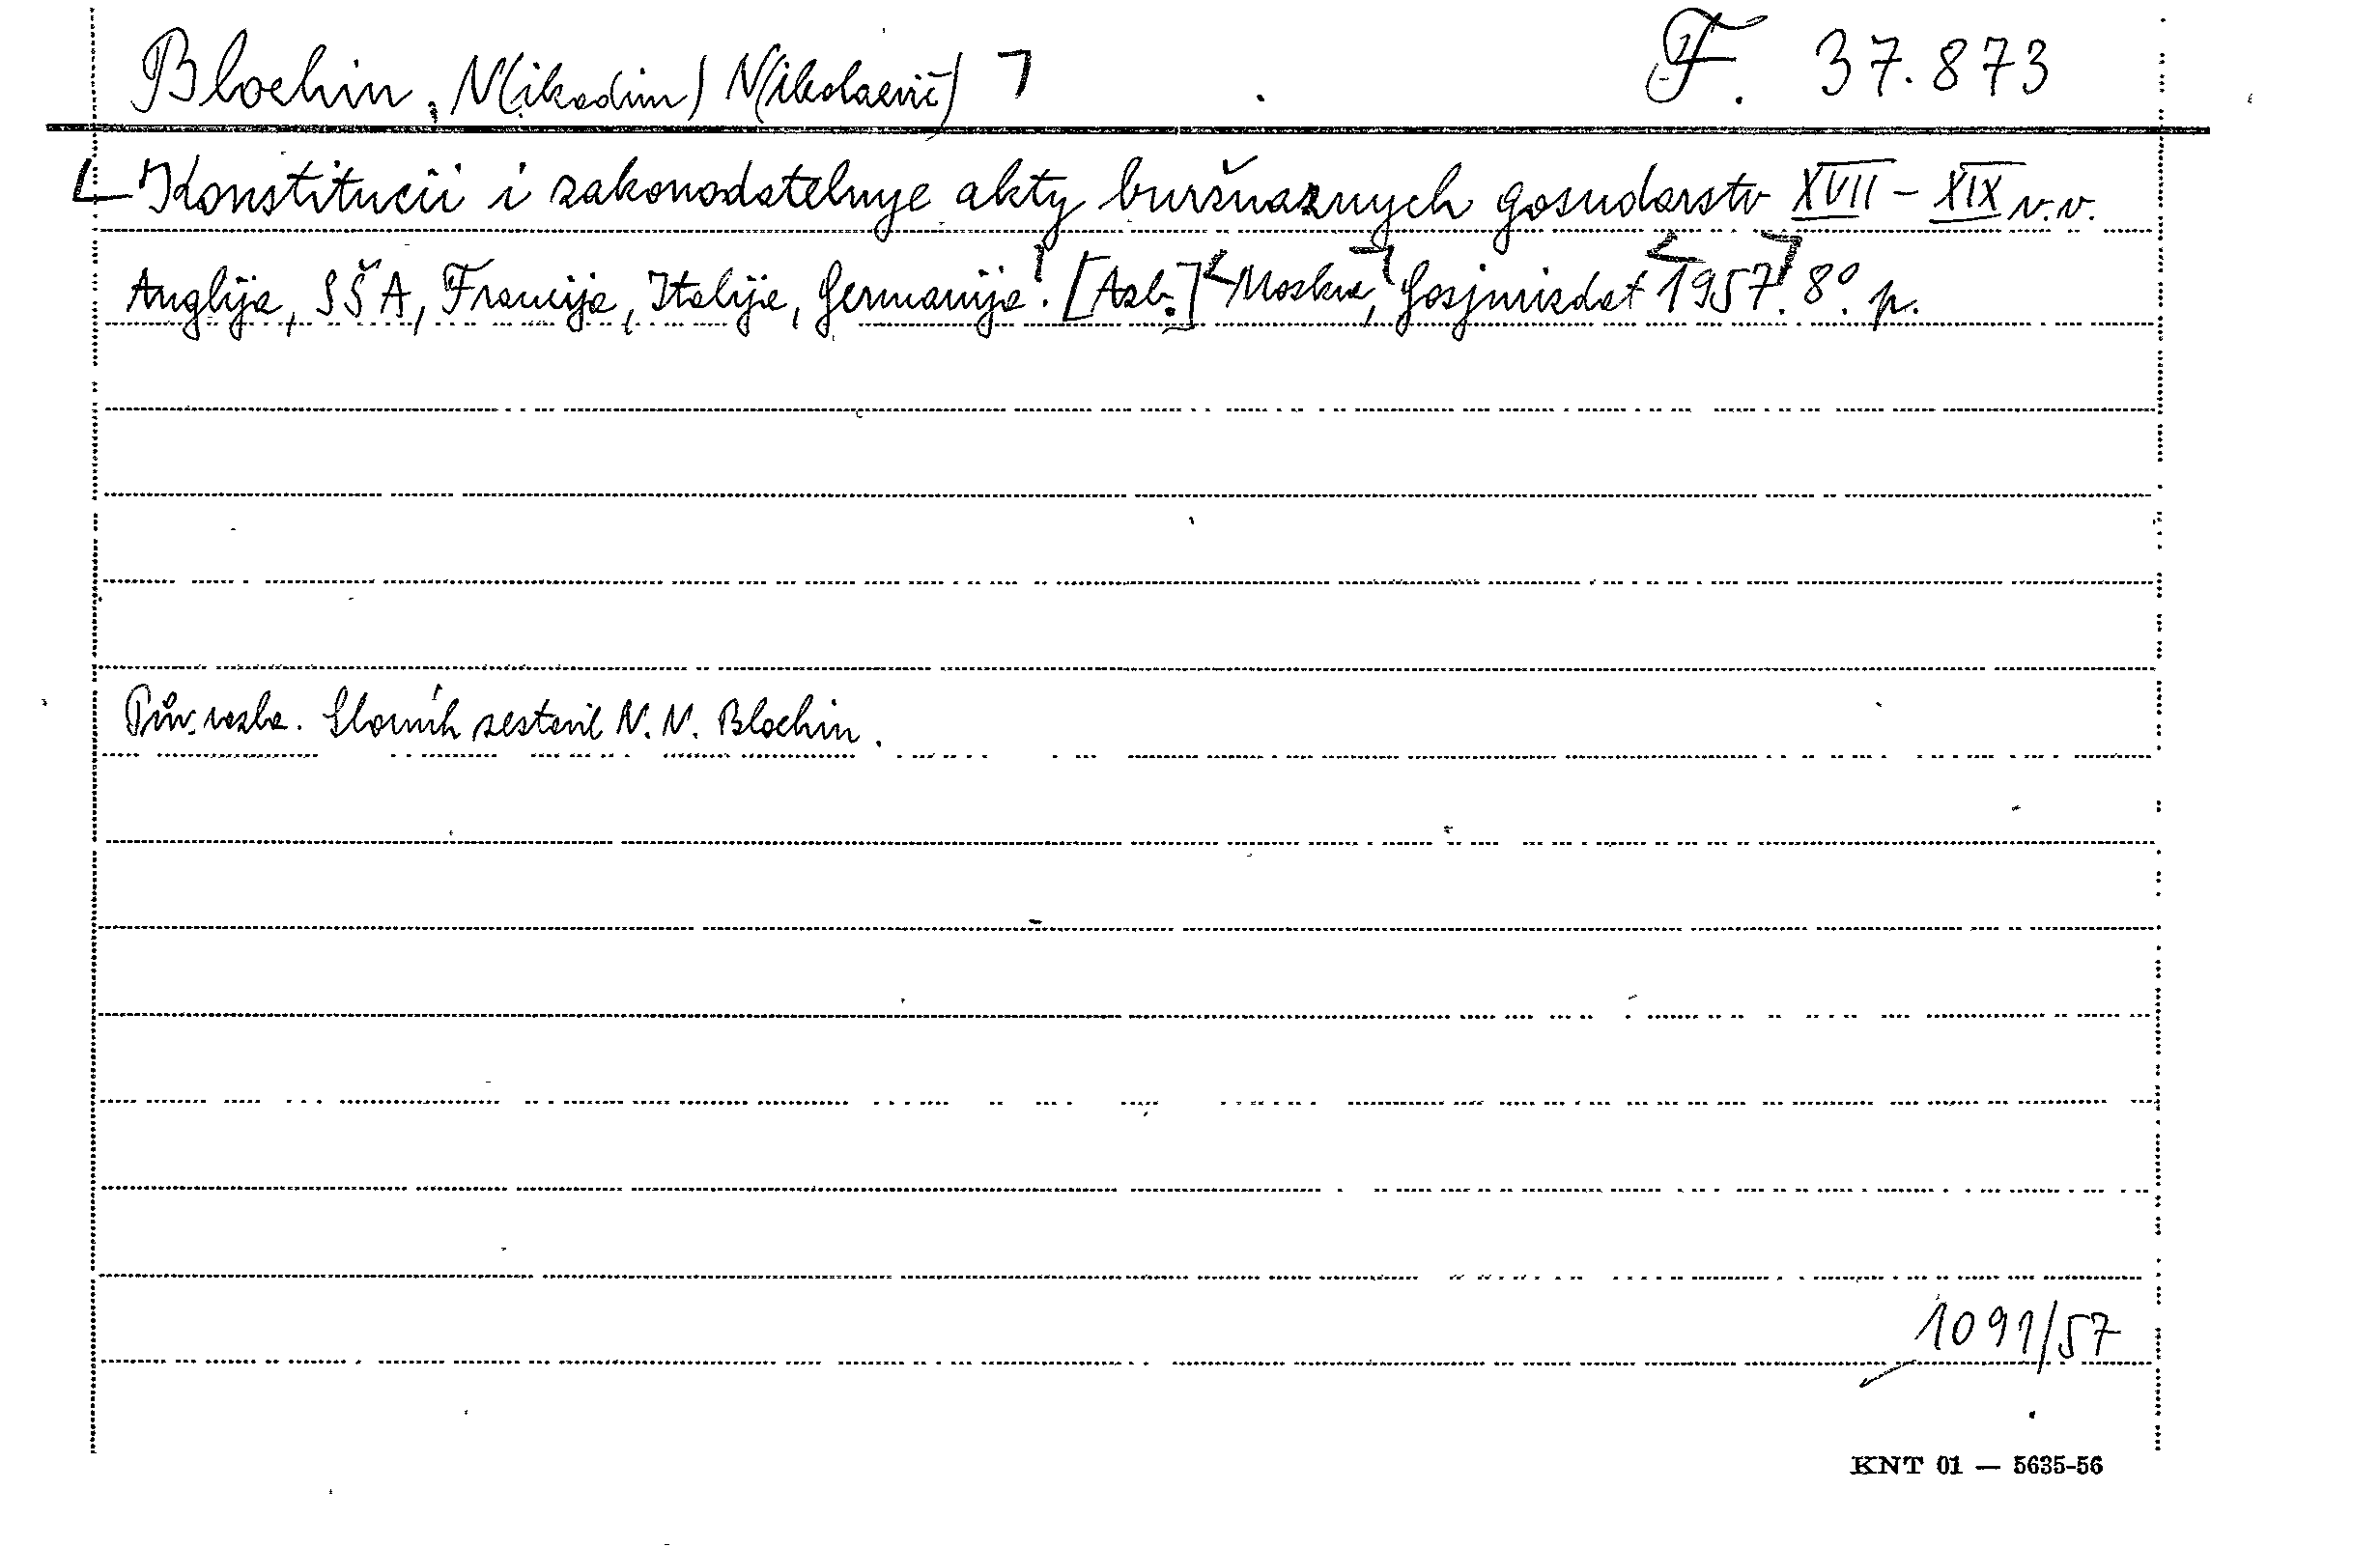 Blochin, N(ikodim) N(ikolaevič) F. 37.873
Konstitucii i zakonodatelnye akty buržuaznych gosudarstv XVII – XIX v.v.
Anglija, SŠA, Francija, Italija, Germanija. [Azb.] Moskva, Gosjurizdat 1957. 8°. p.
Pův. vazba. Sborník sestavil N. N. Blochin.
1091/57
KNT 01 — 5635-56